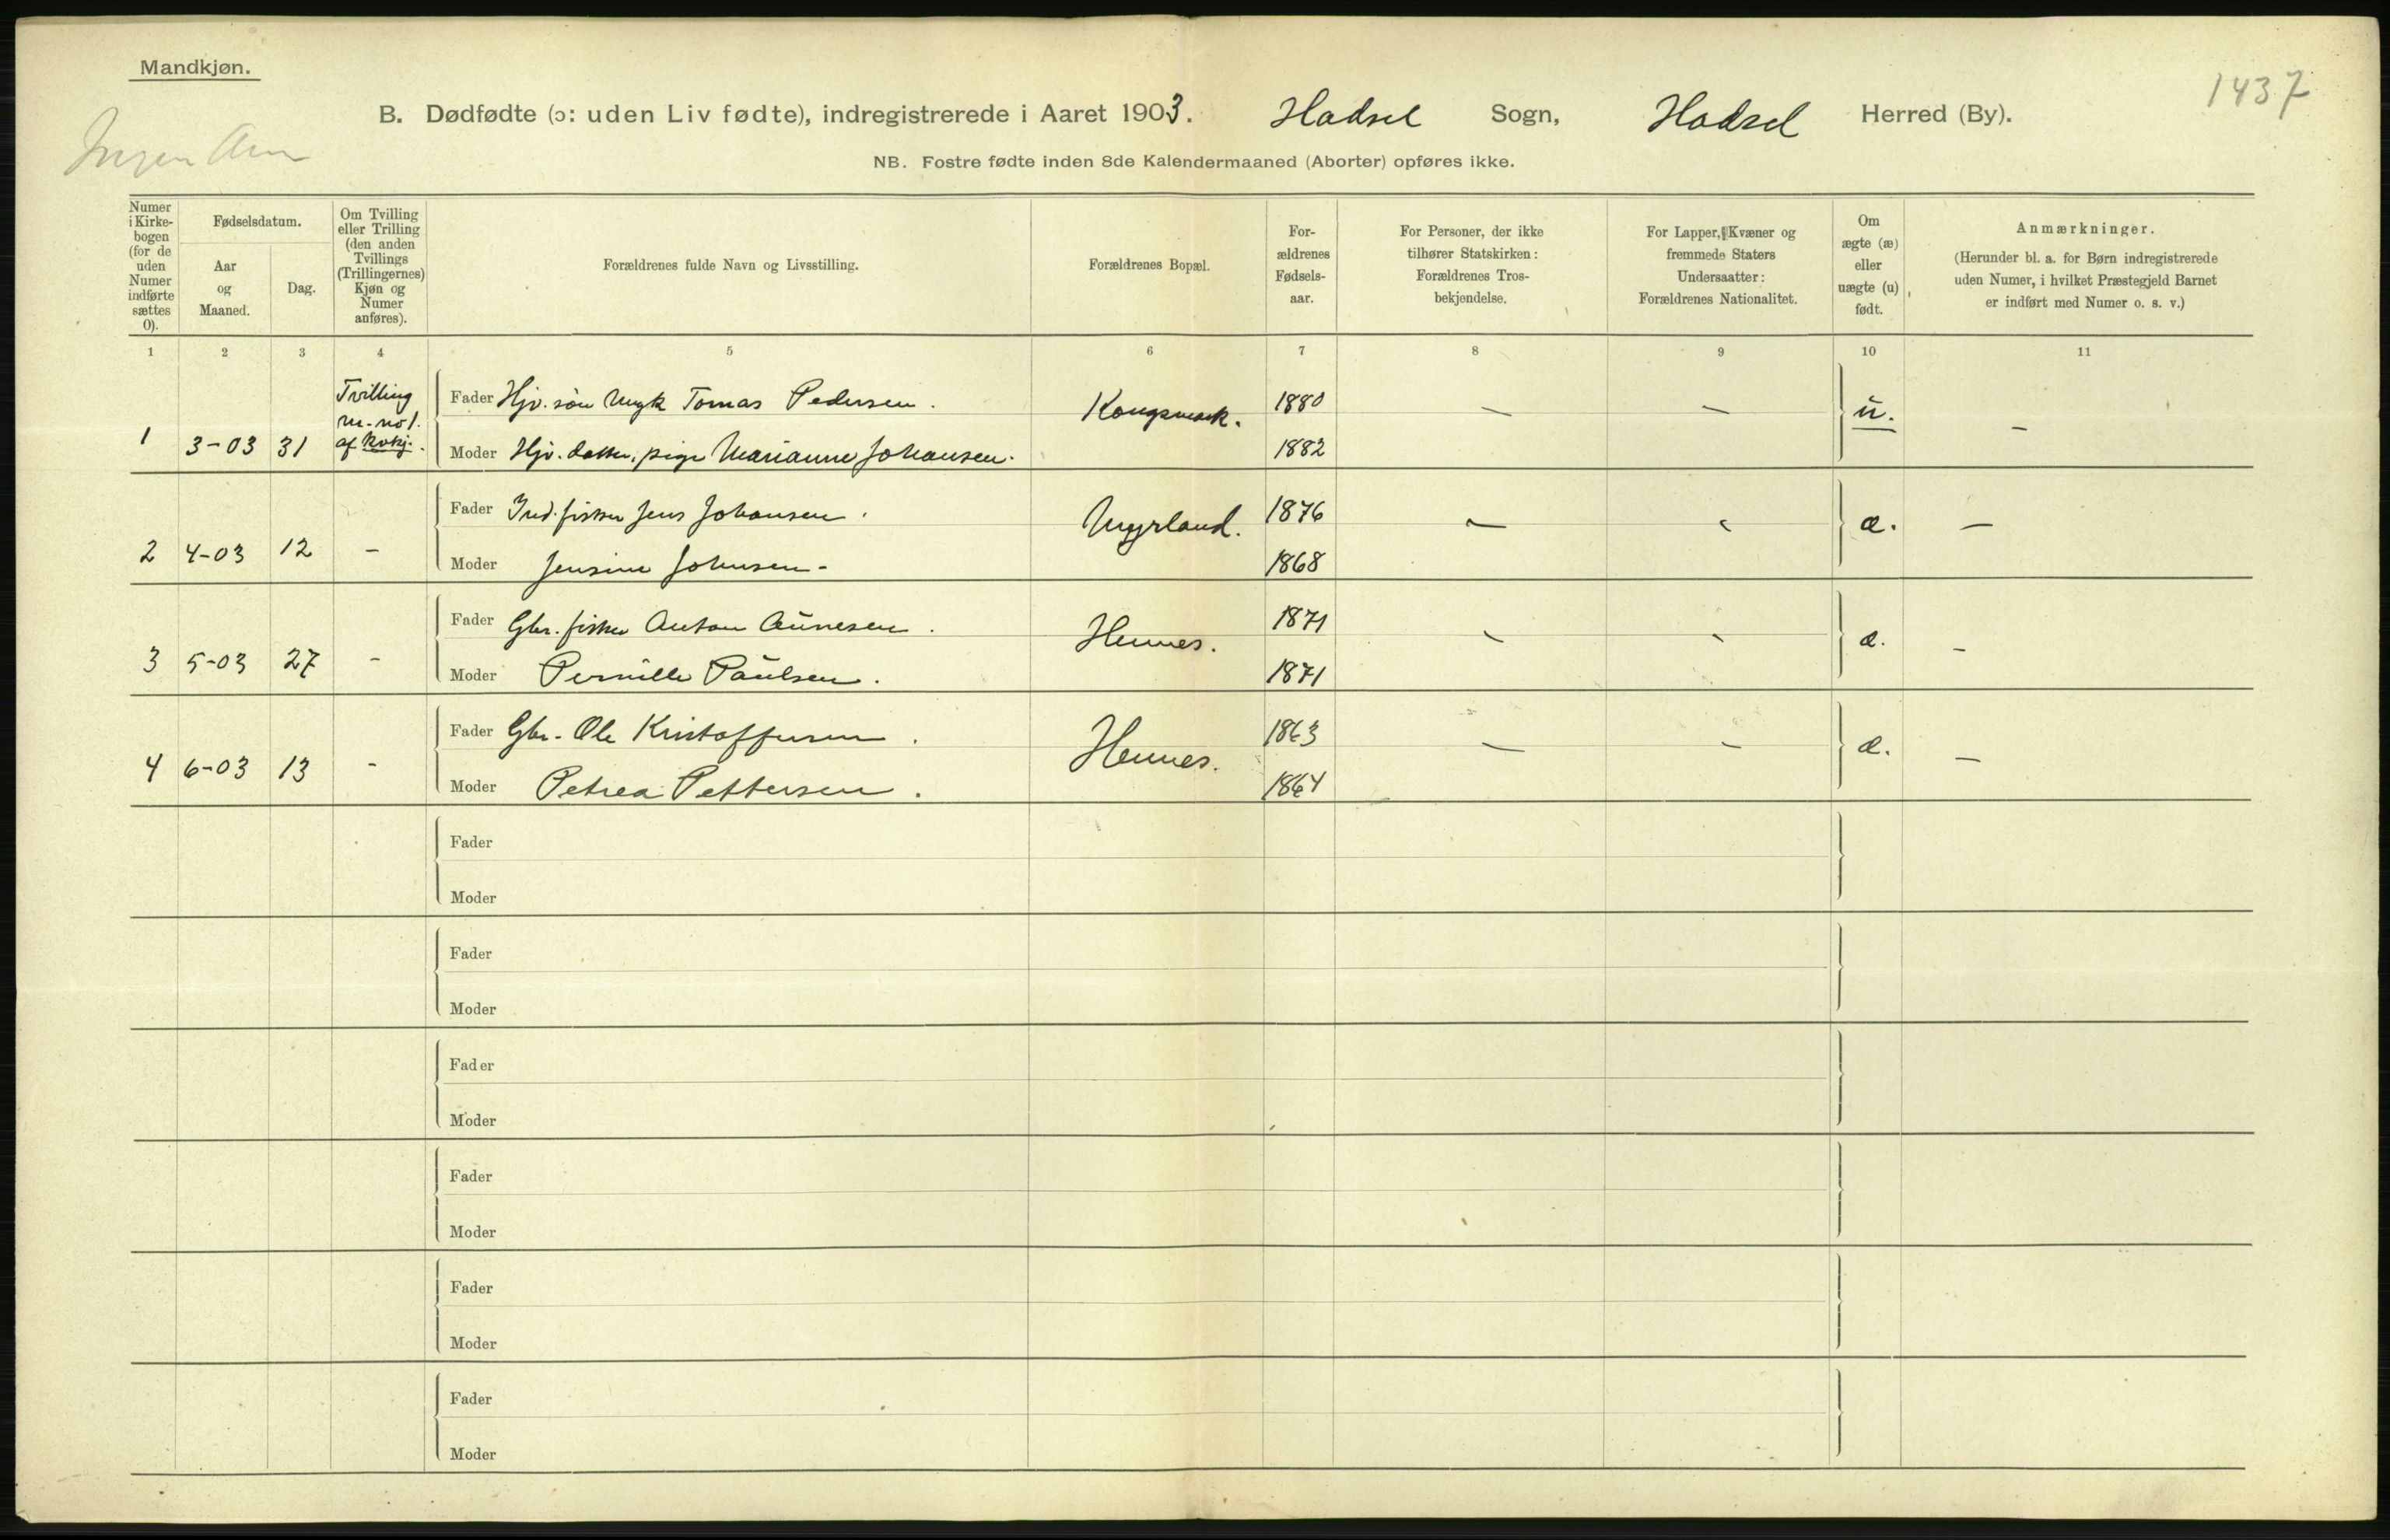 Mandkjøn.
1437
B. Dødfødte (ɔ: uden Liv fødte), indregistrerede i Aaret 1903. Hadsel Sogn, Hadsel Herred (By).
Ingen Anm
NB. Fostre fødte inden 8de Kalendermaaned (Aborter) opføres ikke.
Numer i Kirke- bogen (for de uden Numer indførte sættes 0).
Fødselsdatum.
Aar og Maaned.
Dag.
Om Tvilling eller Trilling (den anden Tvillings (Trillingernes) Kjøn og Numer anføres).
Forældrenes fulde Navn og Livsstilling.
Forældrenes Bopæl.
For- ældrenes Fødsels- aar.
For Personer, der ikke tilhører Statskirken: Forældrenes Tros- bekjendelse.
For Lapper, Kvæner og fremmede Staters Undersaatter: Forældrenes Nationalitet.
Om ægte (æ) eller uægte (u) født.
Anmærkninger.
(Herunder bl. a. for Børn indregistrerede uden Numer, i hvilket Præstegjeld Barnet er indført med Numer o. s. v.)
1 2 3 4 5 6 7 8 9 10 11
Tvilling
m. no 1.
af kvkj.
Fader Hjv. søn Ungk Tomas Pedersen. 1880
1 3-03 31 Kongsmark. — — u. –
Moder Hjv. datter, pige Marianne Johansen. 1882
Fader Ind. fisker Jens Johansen. 1876
2 4-03 12 – Myrland. — – æ. —
Moder Jensine Johnsen - 1868
Fader Gbr. fisker Anton Aunesen. 1871
3 5-03 27 – Hennes. – – æ. –
Moder Pernille Paulsen. 1871
Fader Gbr. Ole Kristoffersen. 1863
4 6-03 13 – Hennes. — – æ. —
Moder Petrea Pettersen. 1864
Fader
Moder
Fader
Moder
Fader
Moder
Fader
Moder
Fader
Moder
Fader
Moder